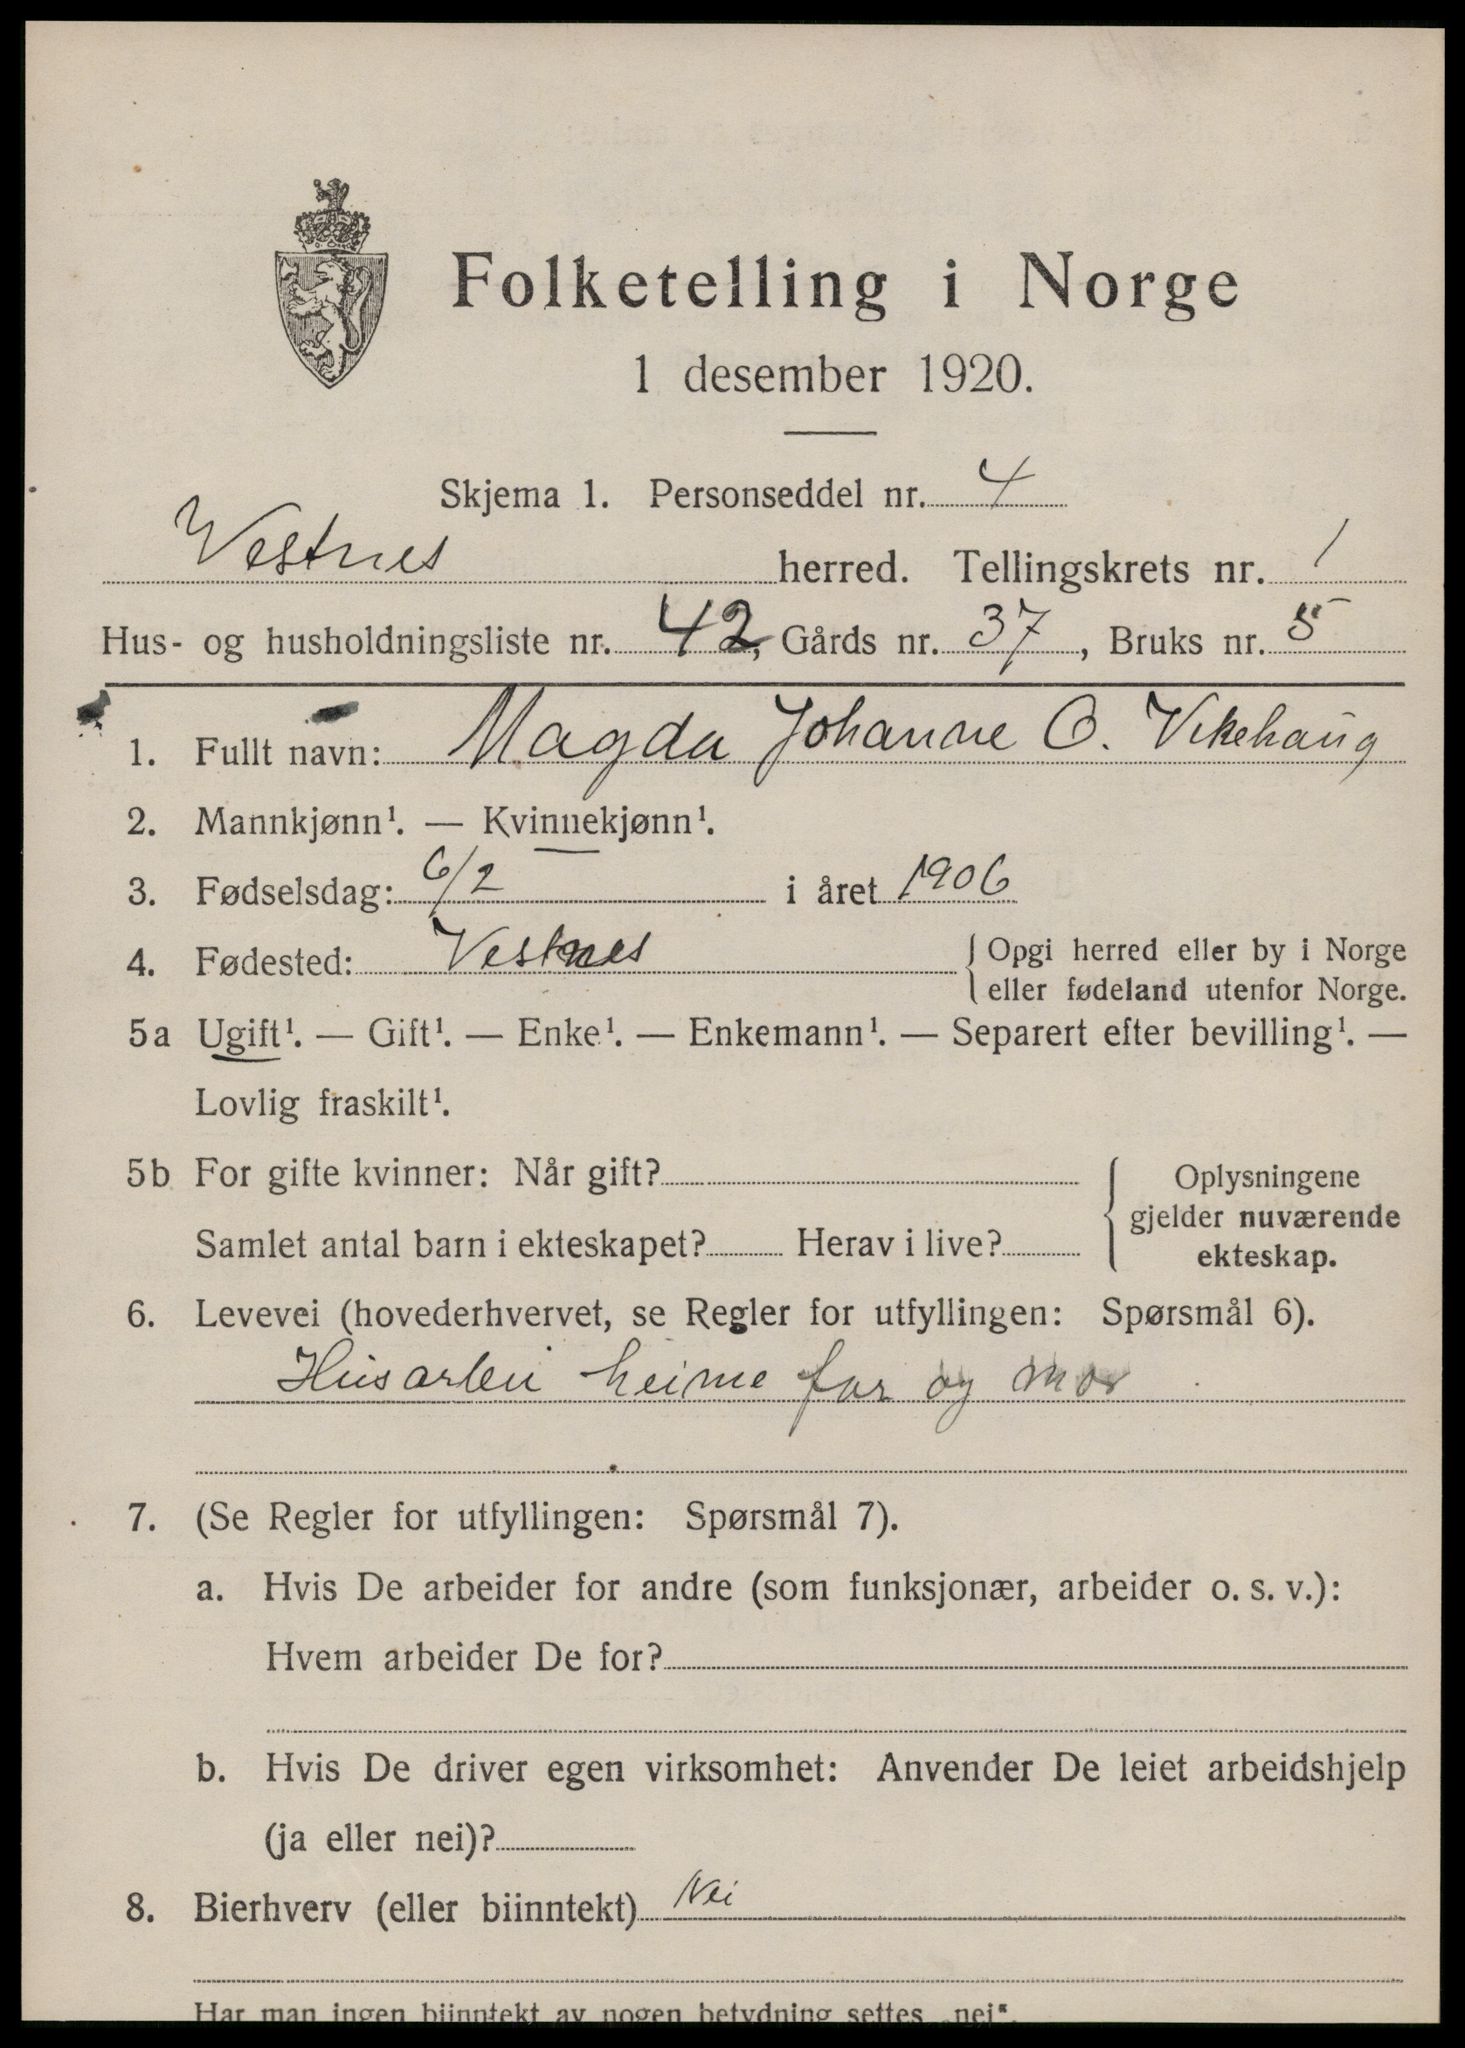 Folketelling i Norge
1 desember 1920.
Skjema 1. Personseddel nr. 4
Vestnes herred. Tellingskrets nr. 1
Hus- og husholdningsliste nr. 42, Gårds nr. 37, Bruks nr. 5
1. Fullt navn: Magda Johanne O. Vikehaug
2. Mannkjønn¹. — Kvinnekjønn¹.
3. Fødselsdag: 6/2 i året 1906
4. Fødested: Vestnes { Opgi herred eller by i Norge
eller fødeland utenfor Norge.
5a Ugift¹. — Gift¹. — Enke¹. — Enkemann¹. — Separert efter bevilling¹. —
Lovlig fraskilt¹.
5b For gifte kvinner: Når gift?
Samlet antal barn i ekteskapet? Herav i live?
Oplysningene
gjelder nuværende
ekteskap.
6. Levevei (hovederhvervet, se Regler for utfyllingen: Spørsmål 6).
Husarbei heime far og mor
7. (Se Regler for utfyllingen: Spørsmål 7).
a. Hvis De arbeider for andre (som funksjonær, arbeider o. s. v.):
Hvem arbeider De for?
b. Hvis De driver egen virksomhet: Anvender De leiet arbeidshjelp
(ja eller nei)?
8. Bierhverv (eller biinntekt) Nei
Har man ingen biinntekt av nogen betydning settes „nei“.